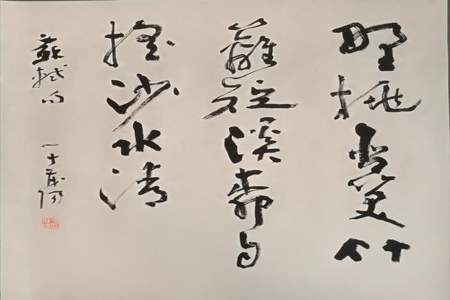 野桃含笑竹
籬短溪柳自
搖沙水清
蘇軾句